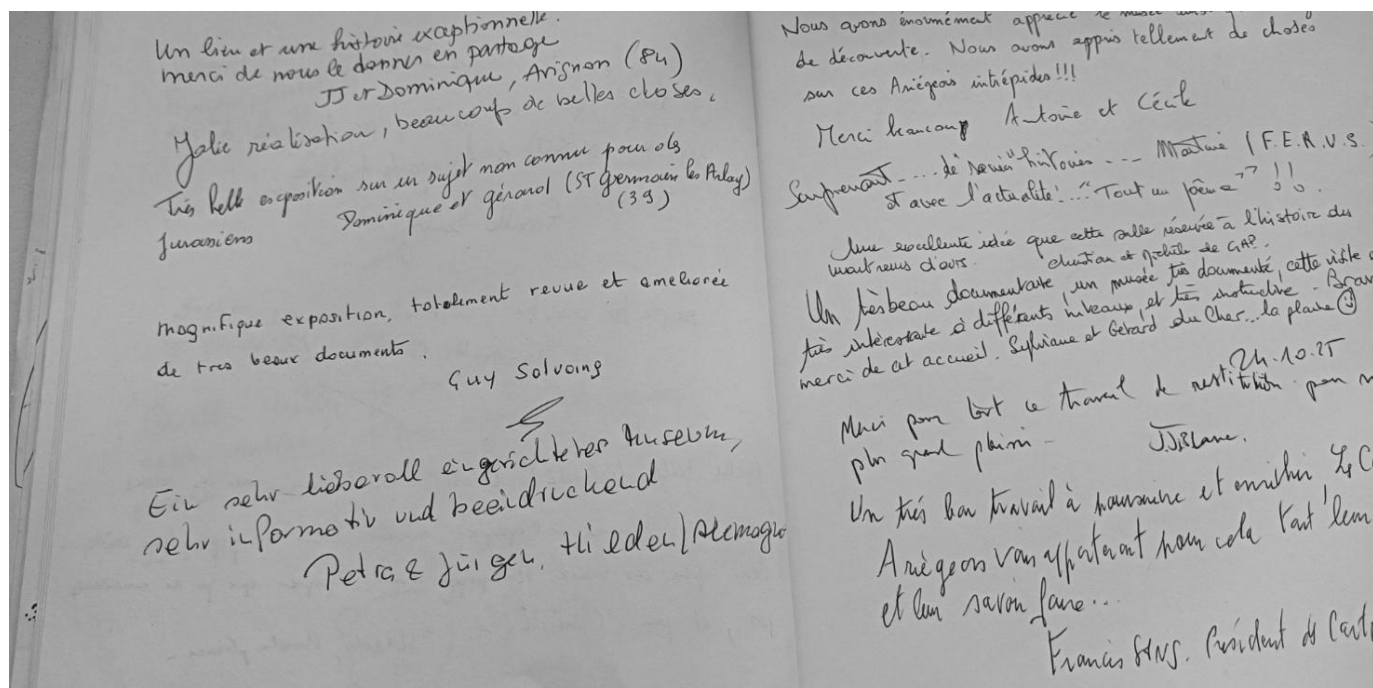 Un lieu et une histoire exceptionnelle.
merci de nous le donner en partage
JJ et Dominique, Avignon (84)
Jolie réalisation, beaucoup de belles choses,
Très belle exposition sur un sujet non connu pour des
Jurassiens Dominique et gérard (ST germain les Arlay)
(39)
magnifique exposition, totalement revue et ameliorée
de tres beaux documents.
Guy
Ein sehr liebevoll eingerichtetes Museum,
sehr informativ und beeindruckend
Petra & Jürgen, Hilden/Alemagne
Nous avons énormément apprécié le musée
de découverte. Nous avons appris tellement de choses
sur ces Ariégeois intrépides!!!
Merci beaucoup Antoine et Cécile
Surprenant .... de histoires ... (F.E.R.U.S.
et avec l'actualité! ... "Tout un poème" !!
Une excellente idée que cette salle réservée à l'histoire des
montreurs d'ours. Christian et de GAP.
Un très beau documentaire un musée très documenté, cette visite
très intéressante à différents niveaux, et très instructive - Bravo
merci de cet accueil. Sylviane et Gérard du Cher... la plaine
24.10.25
Merci pour tout ce travail de restitution pour
plus grand plaisir - JJ Blanc.
Un très bon travail à poursuivre et enrichir. Le
Ariégeois vous apporteront pour cela tout leur
et leur savoir faire...
Francis Président de